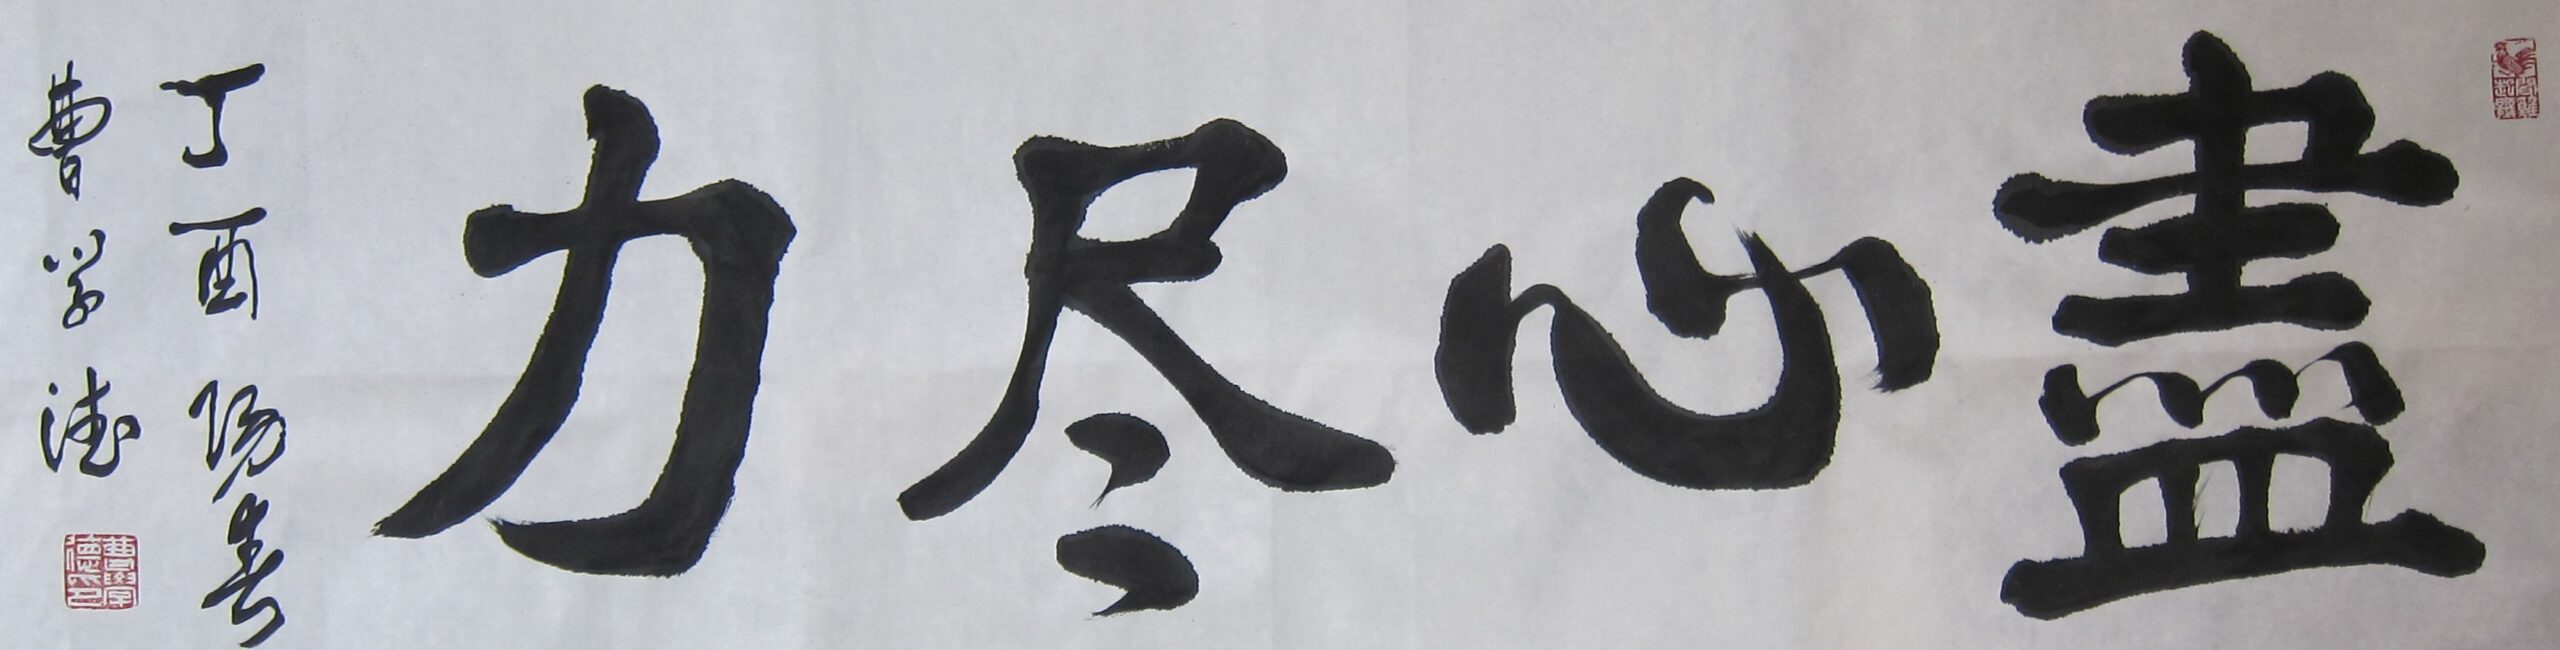 盡心尽力
丁酉陽春
曹学德
曹學德印